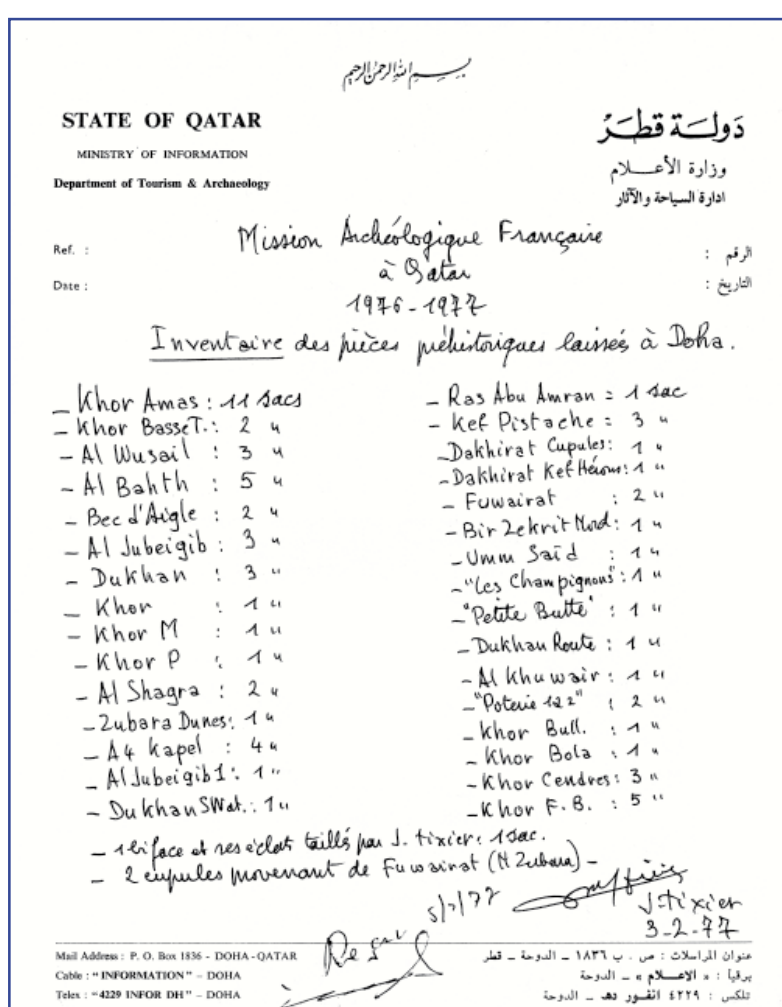 بسم الله الرحمن الرحيم
STATE OF QATAR
MINISTRY OF INFORMATION
Department of Tourism & Archaeology
دولة قطر
وزارة الأعلام
ادارة السياحة والآثار
Ref. :
Date :
الرقم :
التاريخ :
Mission Archéologique Française
à Qatar
1976-1977
Inventaire des pièces préhistoriques laissées à Doha.
– Khor Amas : 11 sacs
– Khor Basse T. : 2 "
– Al Wusail : 3 "
– Al Bahth : 5 "
– Bec d'Aigle : 2 "
– Al Jubeigib : 3 "
– Dukhan : 3 "
– Khor : 1 "
– Khor M : 1 "
– Khor P : 1 "
– Al Shagra : 2 "
– Zubara Dunes : 1 "
– A4 Kapel : 4 "
– Al Jubeigib 1 : 1 "
– Dukhan SWat. : 1 "
– Ras Abu Amran = 1 sac
– Kef Pistache = 3 "
– Dakhirat Cupules : 1 "
– Dakhirat Kef Hérons : 1 "
– Fuwairat : 2 "
– Bir Zekrit Nord : 1 "
– Umm Saïd : 1 "
– "Les Champignons" : 1 "
– "Petite Butte" : 1 "
– Dukhan Route : 1 "
– Al Khuwair : 1 "
– "Poterie 122" : 2 "
– Khor Bull. : 1 "
– Khor Bola : 1 "
– Khor Cendres : 3 "
– Khor F.B. : 5 "
– 1 biface et ses éclats taillés par J. Tixier : 1 sac.
– 2 cupules provenant de Fuwairat (N Zubara) –
J. Tixier
3-2-77
Mail Address : P. O. Box 1836 - DOHA - QATAR
Cable : "INFORMATION" – DOHA
Telex : "4229 INFOR DH" – DOHA
عنوان المراسلات : ص . ب ١٨٣٦ ــ الدوحة ــ قطر
برقيا : « الاعــلام » ــ الدوحة
تلكس : ٤٢٢٩ انفــور دهـ ــ الدوحة